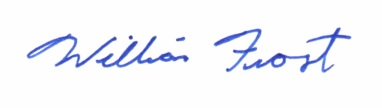 William Frost